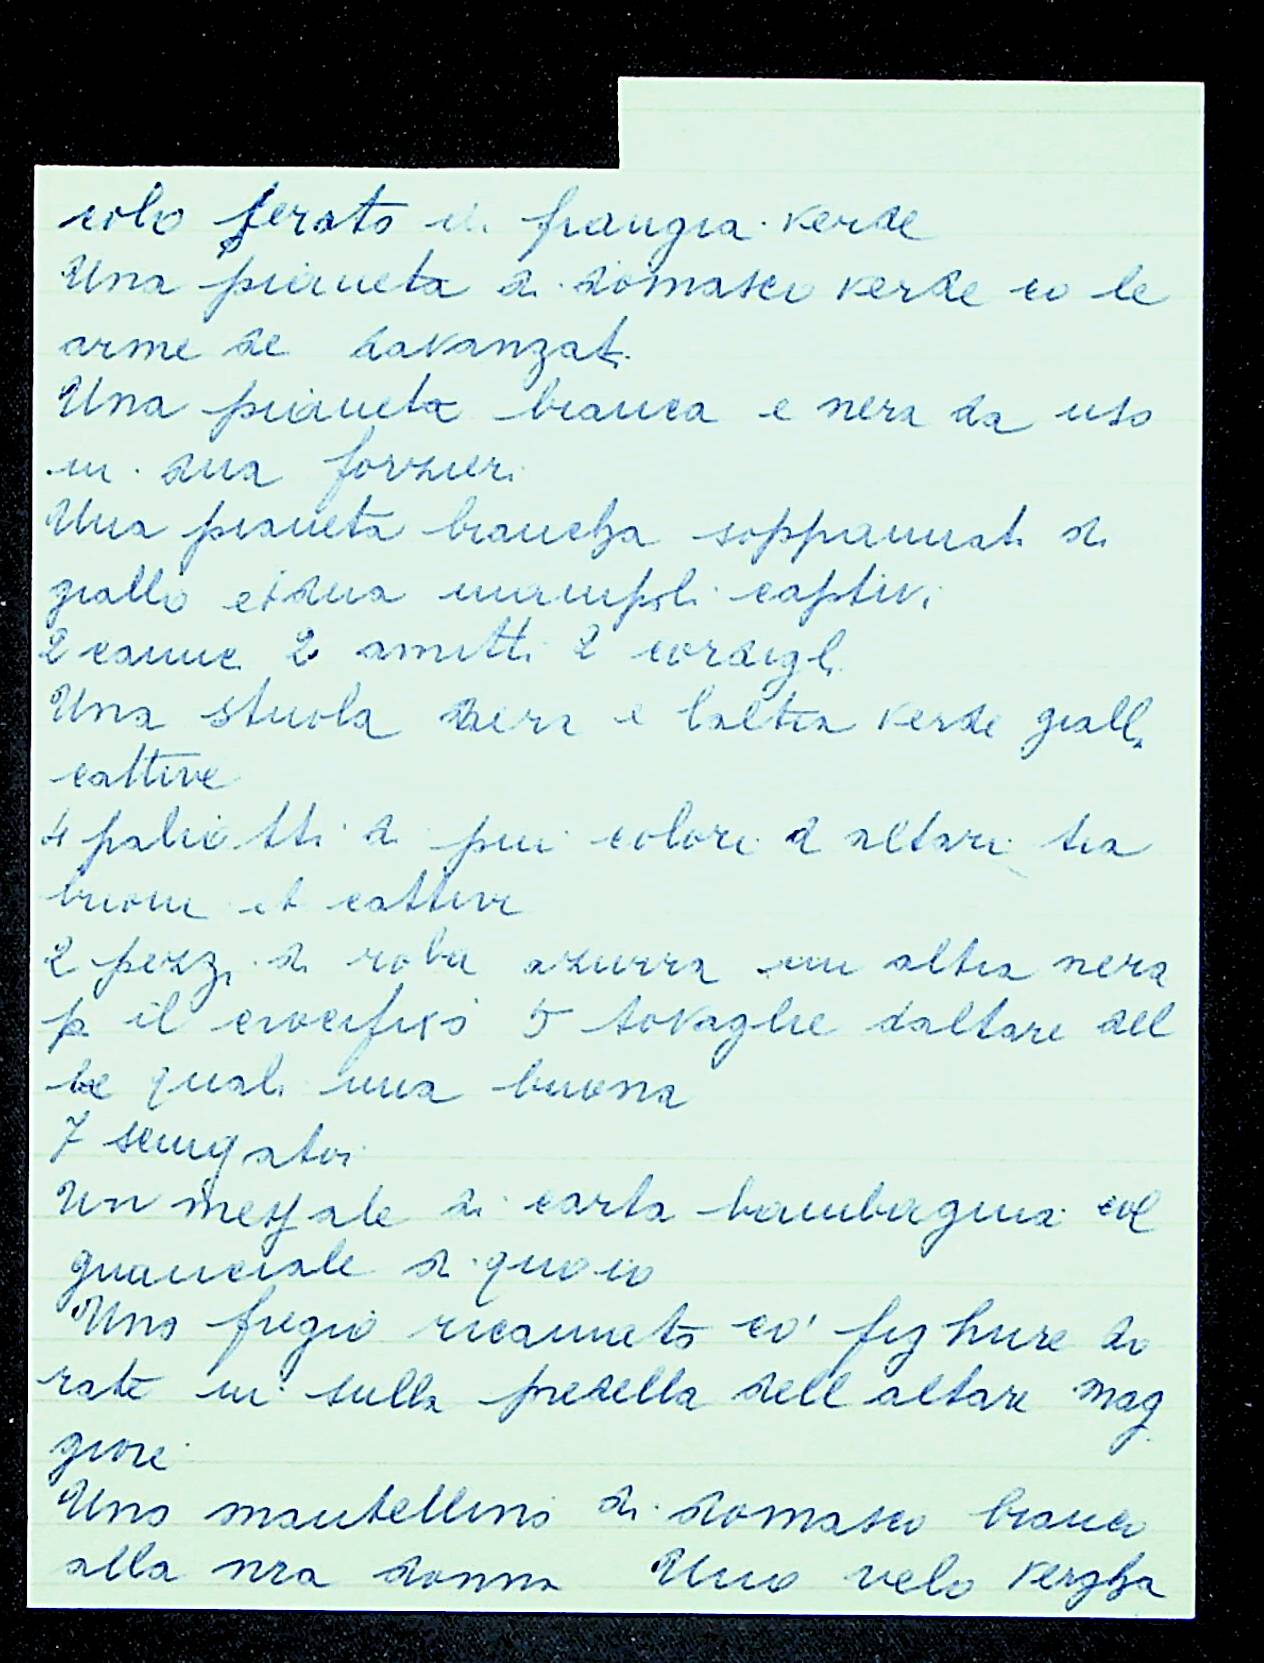 colo ferato di frangia verde
Una pianeta di domasco verde co le
arme de davanzati
Una pianeta bianca e nera da uso
in dua forzieri
Una pianeta biancha soppannati di
giallo et dua manipoli captivi
2 camic 2 amitti 2 cordigli
Una stuola nera e laltra verde gialla
cattive
4 paliotti di piu colori d altari tra
buoni et cattivi
2 pezzi di roba azurra un altra nera
p il crocifixo 5 tovaglie daltare del
le quali una buona
7 sciugatoi
Un messale di carta bambagina col
guanciale di quoio
Uno fregio ricamato co' fighure do
rate in sulla predella dell altare mag
giore
Uno mantellino di domasco bianco
alla nra donna Uno velo vergha